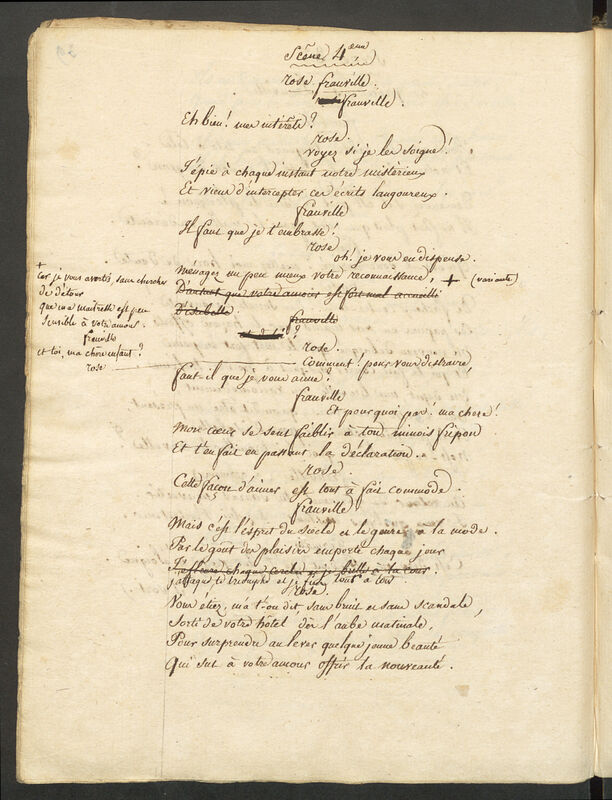 39
Scène 4eme
rose. franville.
franville.
Eh bien! mes intérêts?
rose.
voyez si je les soigne!
J'épie à chaque instant votre mistèrieux
Et viens d'intercepter ces écrits langoureux.
franville
Il faut que je t'embrasse!
rose
oh! je vous en dispense.
Ménagez un peu mieux votre reconnaissance, + (variante)
D'autant que votre amour est fort mal accueilli
D'isabelle.
franville
et de toi?
rose.
Comment! pour vous distraire,
faut-il que je vous aime?
franville
Et pourquoi pas! ma chere!
Mon cœur se sent faiblir à ton minois fripon
Et t'en fait en passant la déclaration.
rose.
Cette façon d'aimer est tout à fait commode.
franville
Mais c'est l'esprit du siècle et le genre à la mode.
Par le goût des plaisirs emporté chaque jour
J'effleure chaque cercle et je brille à la cour.
j'attaque, je triomphe et je fuis tour à tour
rose.
Vous étiez, m'a t-on dit, sans bruit et sans scandale,
Sorti de votre hôtel dès l'aube matinale,
Pour surprendre au lever quelque jeune beauté
Qui sut à votre amour offrir la nouveauté.
+
Car je vous avertis, sans chercher
de détour
que ma maitresse est peu
sensible à votre amour.
franville
et toi, ma chère enfant?
rose